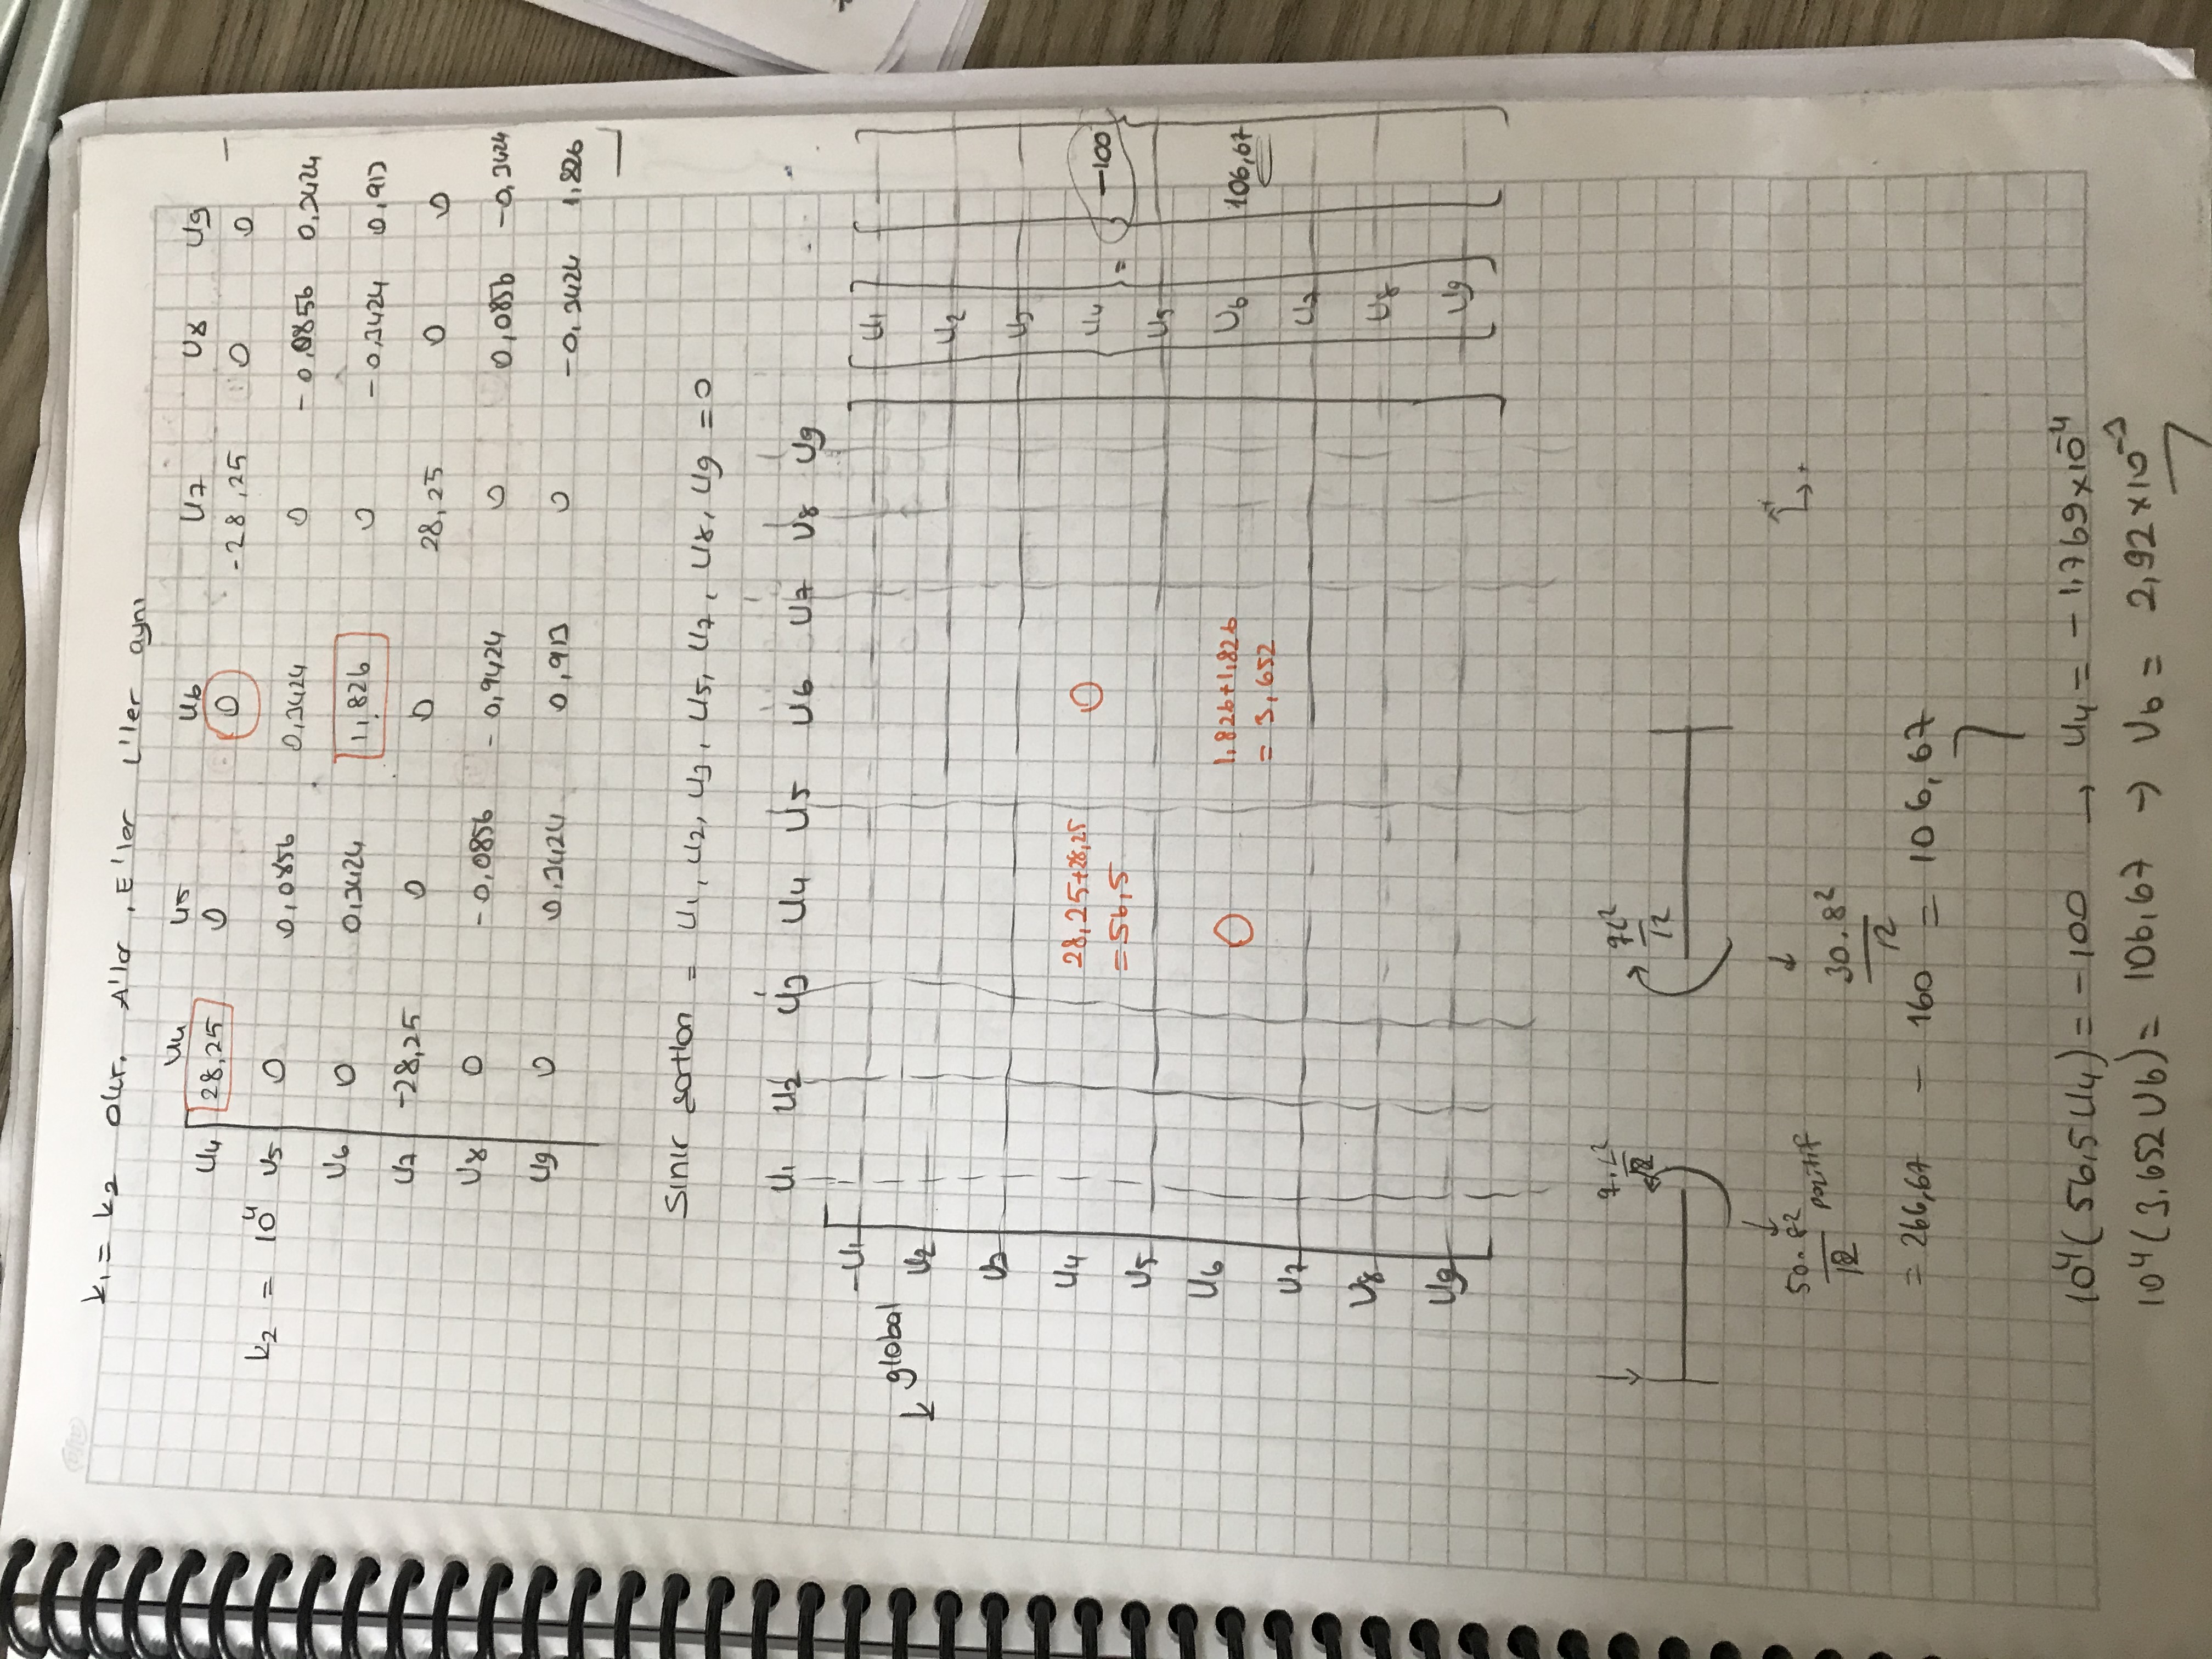 k1 = k2 olur. A'lar, E'ler L'ler aynı
U4 U5 U6 U7 U8 U9
U4 28,25 0 0 -28,25 0 0
k2 = 10^4 U5 0 0,0856 0,3424 0 -0,0856 0,3424
U6 0 0,3424 1,826 0 -0,3424 0,913
U7 -28,25 0 0 28,25 0 0
U8 0 -0,0856 -0,9424 0 0,0856 -0,3424
U9 0 0,3424 0,913 0 -0,3424 1,826
Sınır şartları = U1, U2, U3, U5, U7, U8, U9 = 0
U1 U2 U3 U4 U5 U6 U7 U8 U9
U1 U1
global
U2 U2
U3 U3
U4 28,25+28,25 0 U4 -100
= 56,5 =
U5 U5
U6 0 1,826+1,826 U6 106,67
= 3,652
U7 U7
U8 U8
U9 U9
q.L²/12 qL²/12
50.8²/12 pozitif 30.8²/12
= 266,67 - 160 = 106,67
10^4 (56,5 U4) = -100 → U4 = -1,769x10^-4
10^4 (3,652 U6) = 106,67 → U6 = 2,92x10^-3